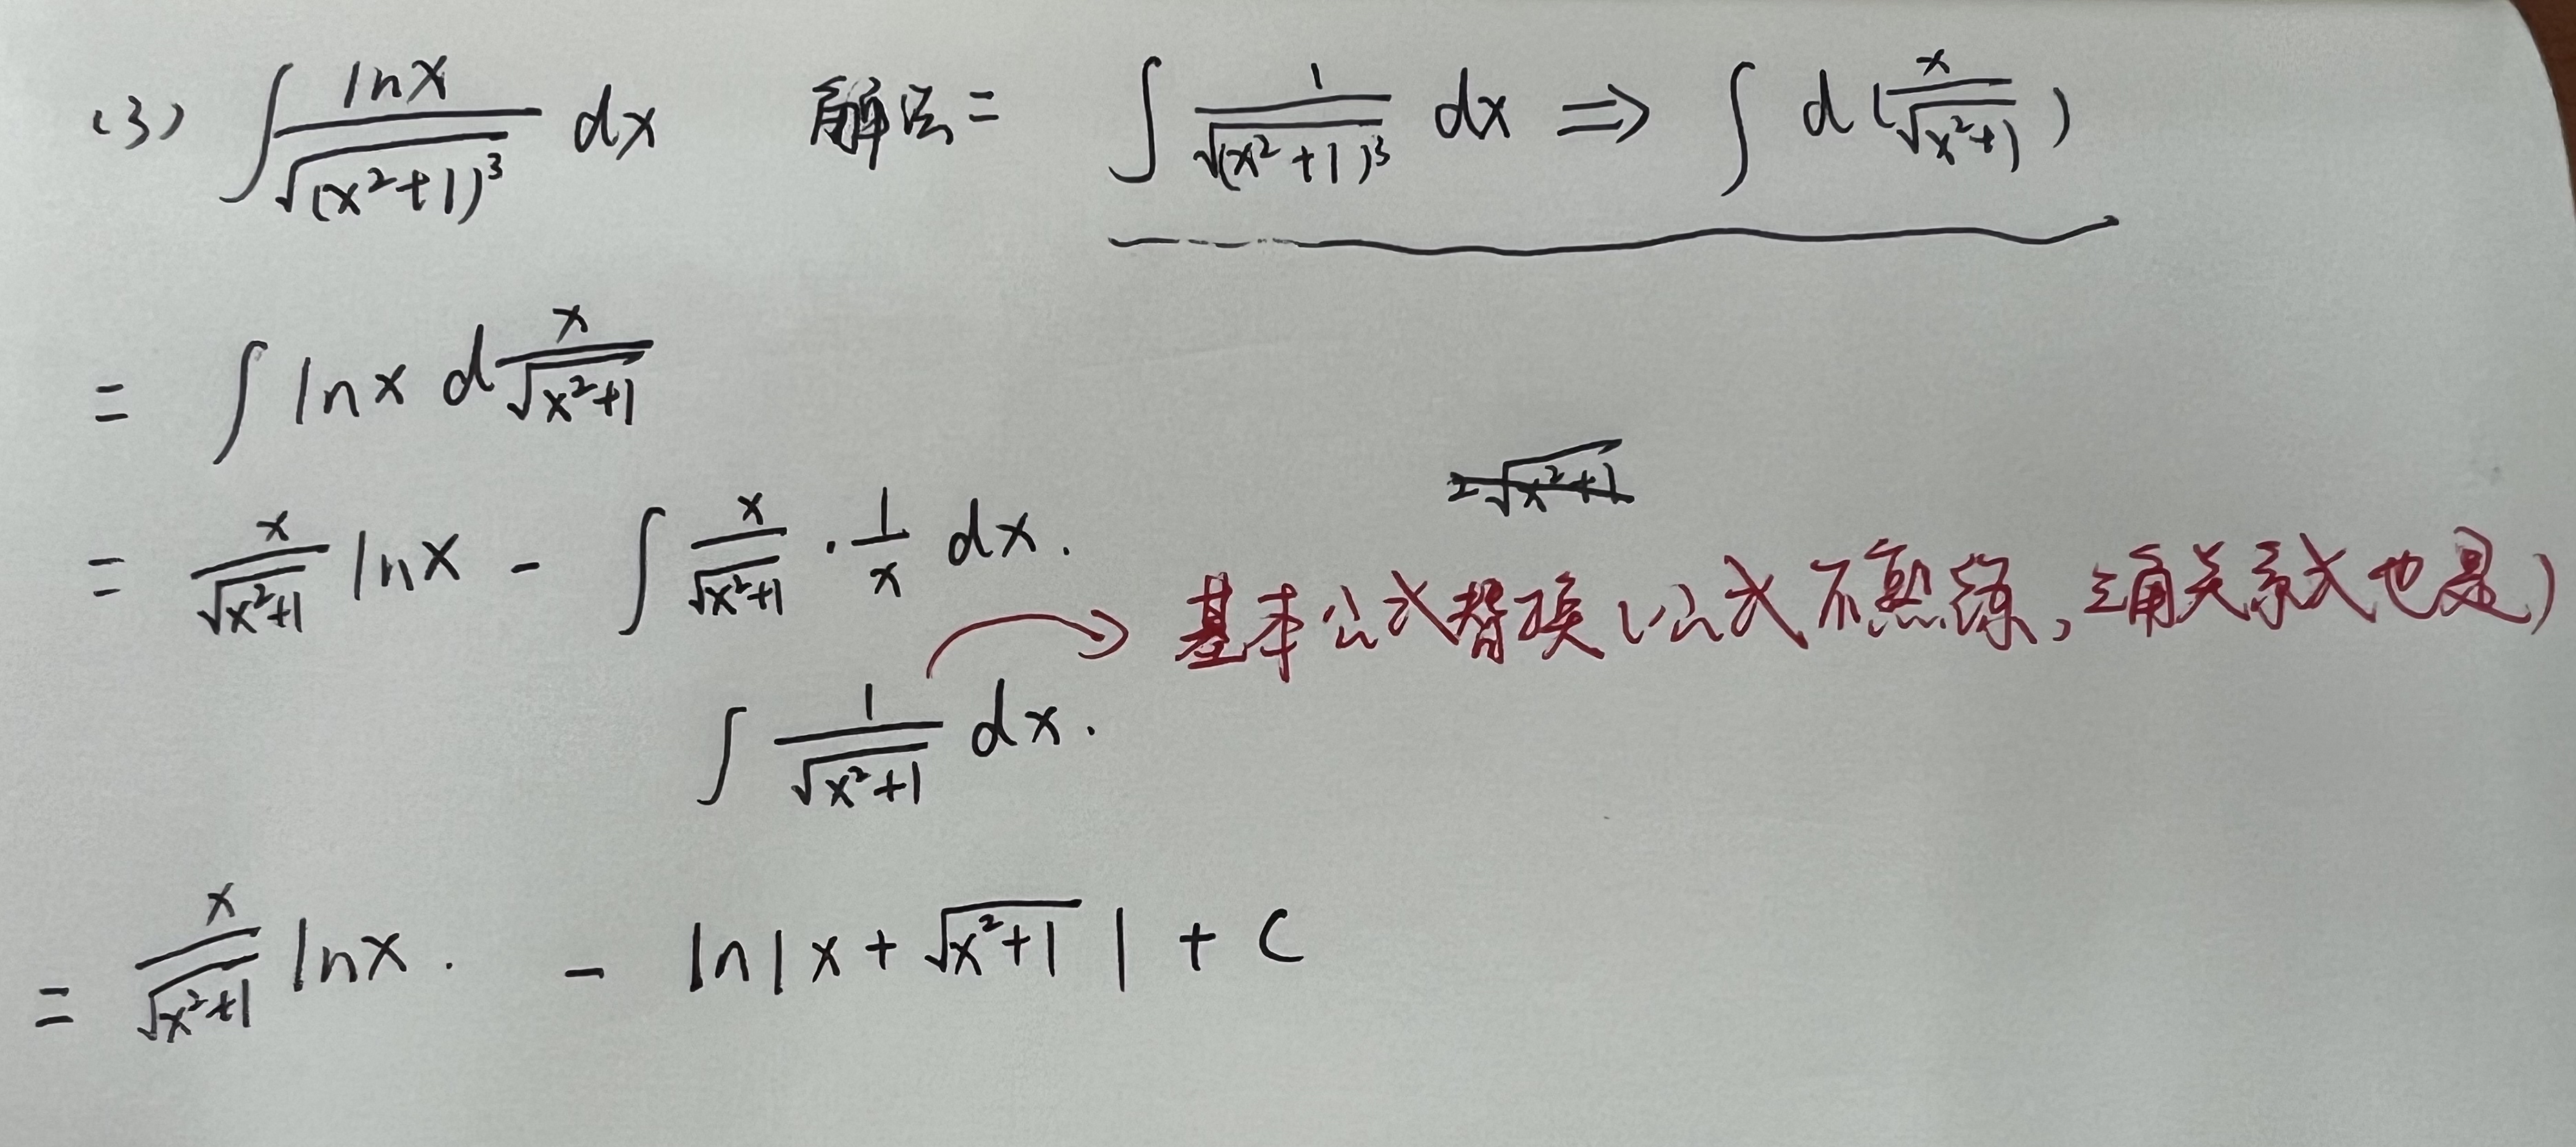 (3) ∫ lnx/√(x²+1)³ dx 解法二 ∫ 1/√(x²+1)³ dx ⇒ ∫ d(x/√(x²+1))
= ∫ lnx d x/√(x²+1)
= x/√(x²+1) lnx - ∫ x/√(x²+1) · 1/x dx.
基本公式替换(公式不熟练,三角关系式也是)
∫ 1/√(x²+1) dx.
= x/√(x²+1) lnx. - ln|x+√(x²+1)| + C